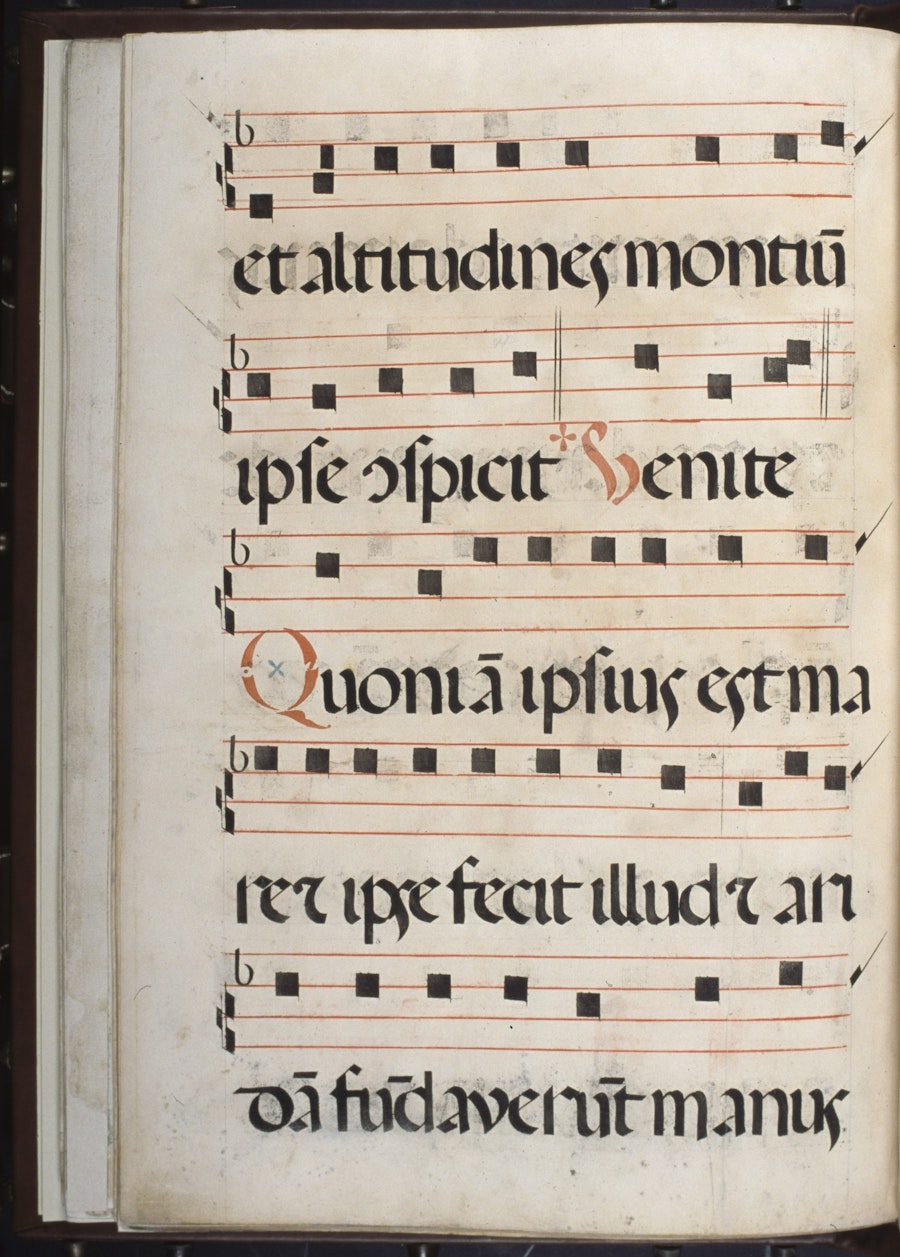 et altitudines montiū
ipse ɔspicit ✢ Venite
Quoniā ipsius est ma
re ⁊ ipse fecit illud ⁊ ari
dā fūdaverūt manus